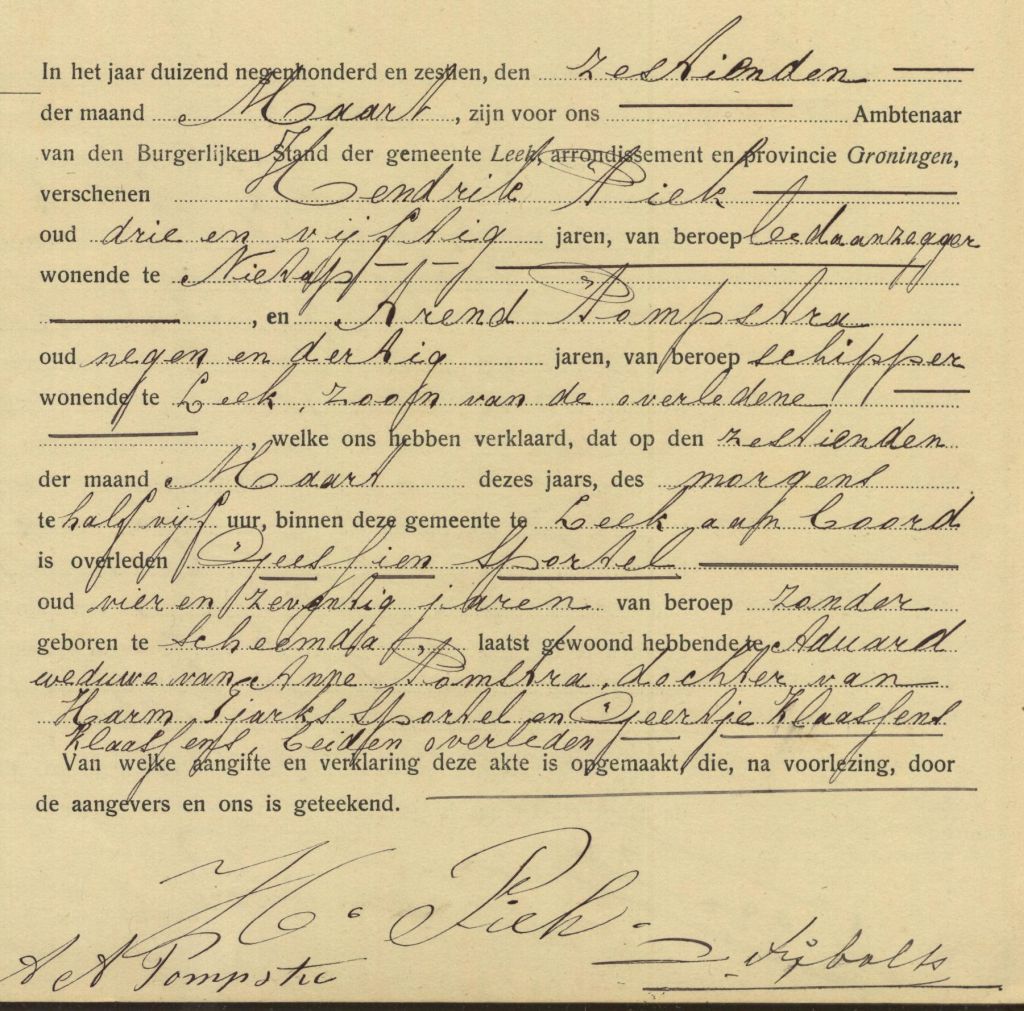 In het jaar duizend negenhonderd en zestien, den zestienden
der maand Maart, zijn voor ons Ambtenaar
van den Burgerlijken Stand der gemeente Leek, arrondissement en provincie Groningen,
verschenen Hendrik Piek
oud drie en vijftig jaren, van beroep leedaanzegger
wonende te Nietap
, en Arend Pompstra
oud negen en dertig jaren, van beroep schipper
wonende te Leek, zoon van de overledene
, welke ons hebben verklaard, dat op den zestienden
der maand Maart dezes jaars, des morgens
te half vijf uur, binnen deze gemeente te Leek aan boord
is overleden Geessien Sportel
oud vier en zeventig jaren van beroep zonder
geboren te Scheemda, laatst gewoond hebbende te Aduard
weduwe van Anne Pomstra, dochter van
Harm Tjarks Sportel en Geertje Klaassens
Klaassens, beiden overleden
Van welke aangifte en verklaring deze akte is opgemaakt, die, na voorlezing, door
de aangevers en ons is geteekend.
H. Piek
A A Pompstra